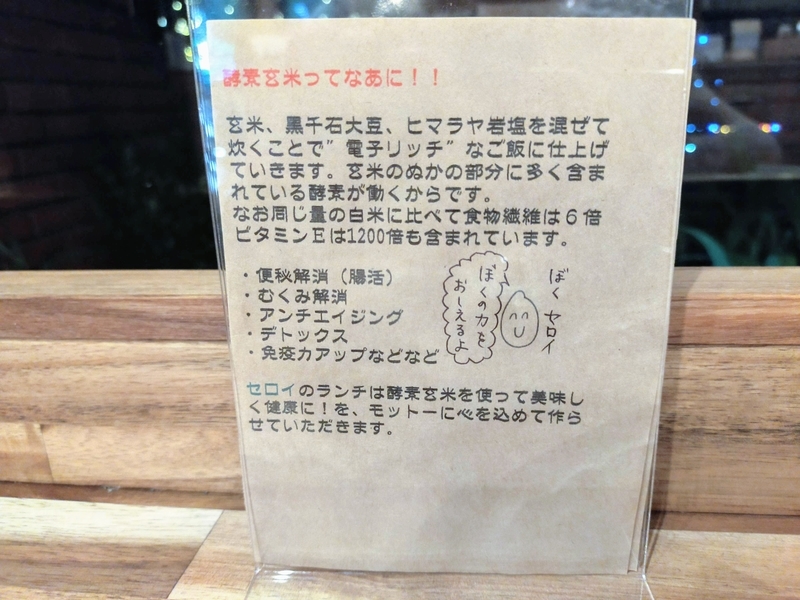 酵素玄米ってなあに！！
玄米、黒千石大豆、ヒマラヤ岩塩を混ぜて
炊くことで”電子リッチ”なご飯に仕上げ
ていきます。玄米のぬかの部分に多く含ま
れている酵素が働くからです。
なお同じ量の白米に比べて食物繊維は６倍
ビタミンEは1200倍も含まれています。
・便秘解消（腸活）
・むくみ解消
・アンチエイジング
・デトックス
・免疫力アップなどなど
ぼく ヤロイ
ぼくの力を
おしえるよ
セロイのランチは酵素玄米を使って美味し
く健康に！を、モットーに心を込めて作ら
せていただきます。